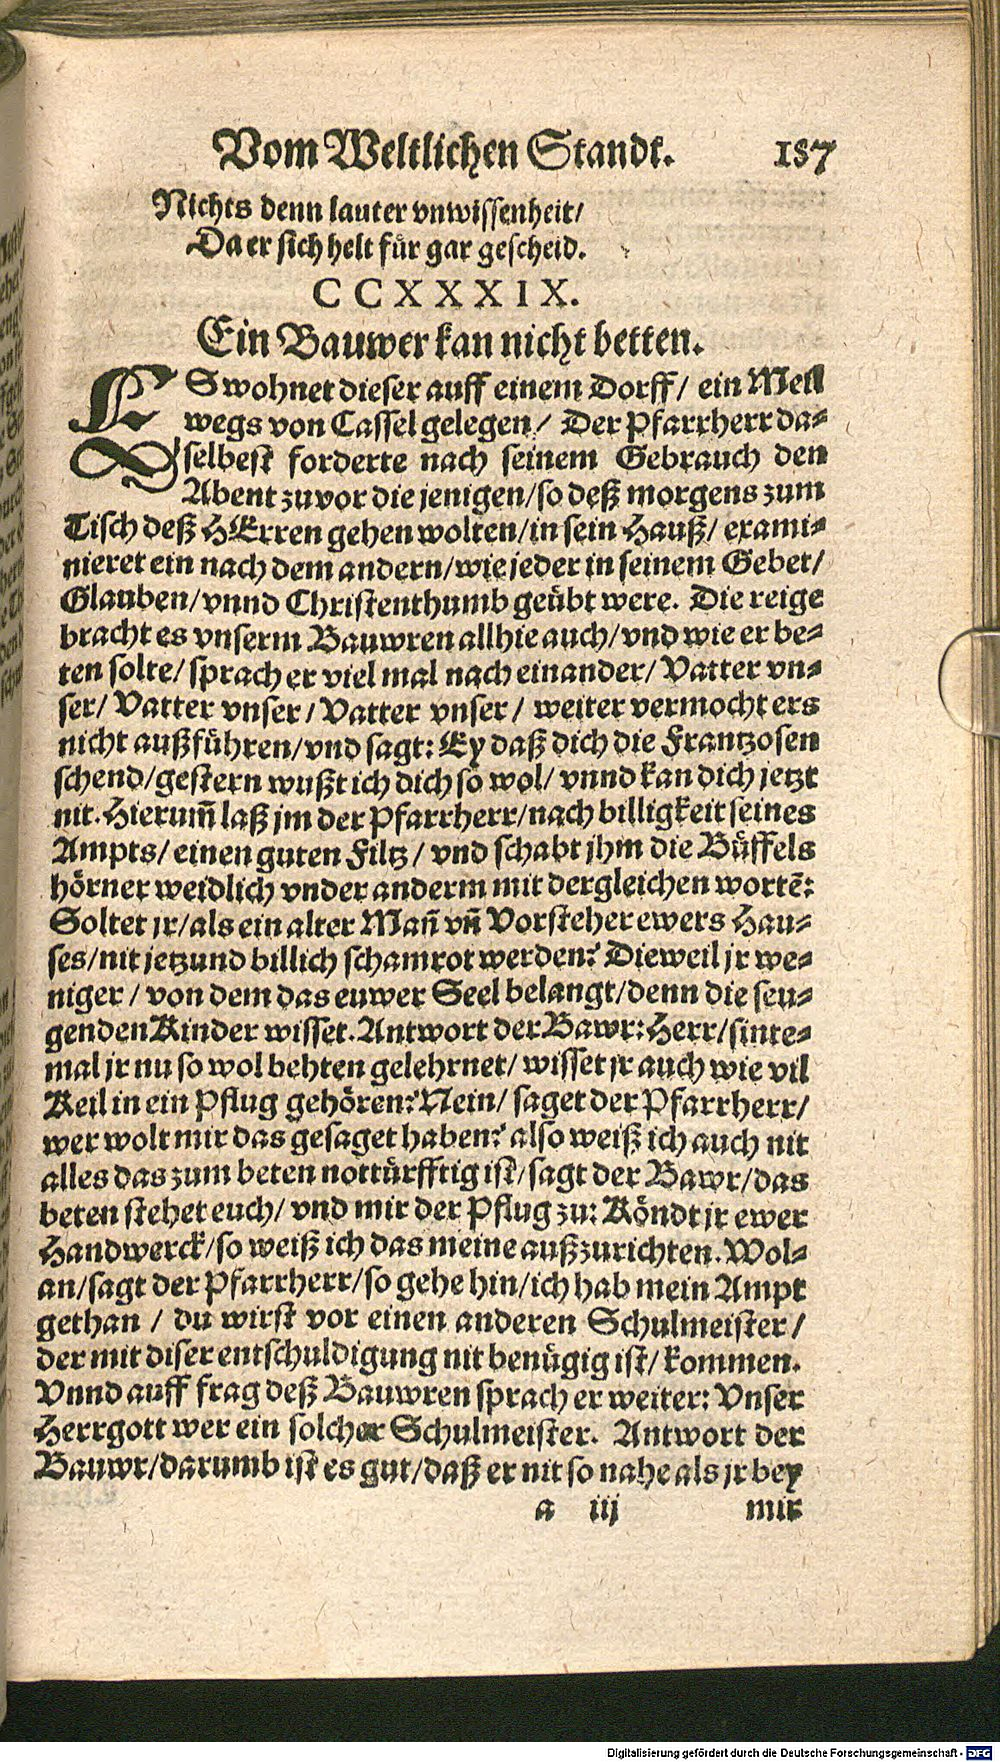 Vom Weltlichen Standt. 187
Nichts denn lauter vnwissenheit/
Da er sich helt für gar gescheid.
CCXXXIX.
Ein Bauwer kan nicht betten.
ES wohnet dieser auff einem Dorff/ ein Meil
wegs von Cassel gelegen/ Der Pfarrherr da-
selbest forderte nach seinem Gebrauch den
Abent zuvor die jenigen/ so deß morgens zum
Tisch deß HErren gehen wolten/ in sein Hauß/ exami-
nieret ein nach dem andern/ wie jeder in seinem Gebet/
Glauben/ vnnd Christenthumb geübt were. Die reige
bracht es vnserm Bauwren allhie auch/ vnd wie er be-
ten solte/ sprach er viel mal nach einander/ Vatter vn-
ser/ Vatter vnser/ Vatter vnser/ weiter vermocht ers
nicht außführen/ vnd sagt: Ey daß dich die Frantzosen
schend/ gestern wußt ich dich so wol/ vnnd kan dich jetzt
nit. Hierum̄ laß jm der Pfarrherr/ nach billigkeit seines
Ampts/ einen guten Filtz/ vnd schabt jhm die Büffels
hörner weidlich vnder anderm mit dergleichen wortē:
Soltet jr/ als ein alter Man̄ vn̄ Vorsteher ewers Hau-
ses/ nit jetzund billich schamrot werden? Dieweil jr we-
niger/ von dem das euwer Seel belangt/ denn die seu-
genden Kinder wisset. Antwort der Bawr: Herr/ sinte-
mal jr nu so wol behten gelehrnet/ wisset jr auch wie vil
Keil in ein Pflug gehören? Nein/ saget der Pfarrherr/
wer wolt mir das gesaget haben? also weiß ich auch nit
alles das zum beten nottürfftig ist/ sagt der Bawr/ das
beten stehet euch/ vnd mir der Pflug zu: Köndt jr ewer
Handwerck/ so weiß ich das meine außzurichten. Wol-
an/ sagt der Pfarrherr/ so gehe hin/ ich hab mein Ampt
gethan/ du wirst vor einen anderen Schulmeister/
der mit diser entschuldigung nit benügig ist/ kommen.
Vnnd auff frag deß Bauwren sprach er weiter: Vnser
Herrgott wer ein solcher Schulmeister. Antwort der
Bauwr/ darumb ist es gut/ daß er nit so nahe als jr bey
a iij mir
Digitalisierung gefördert durch die Deutsche Forschungsgemeinschaft - DFG